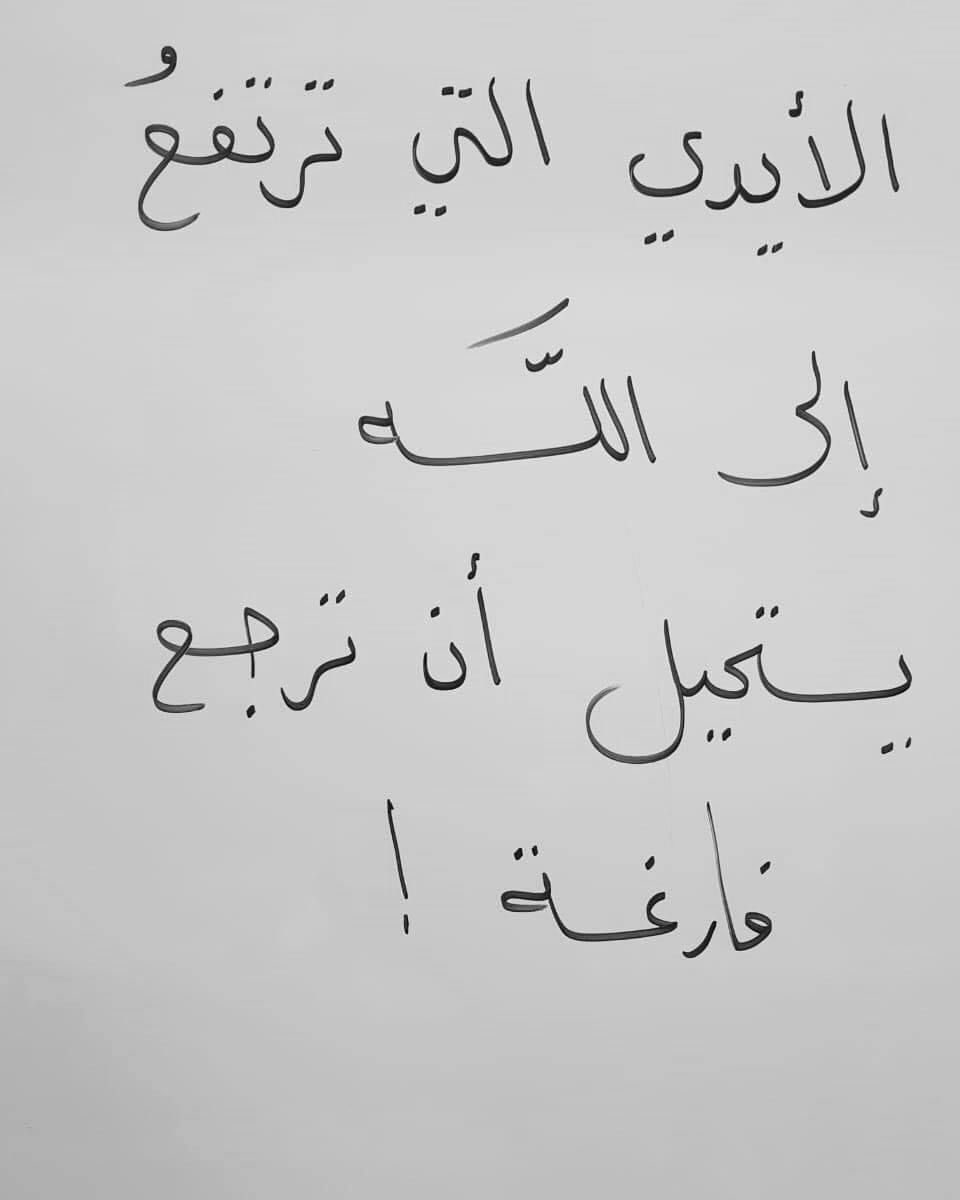 الأيدي التي ترتفعُ
إلى اللَّه
يستحيل أن ترجع
فارغة !